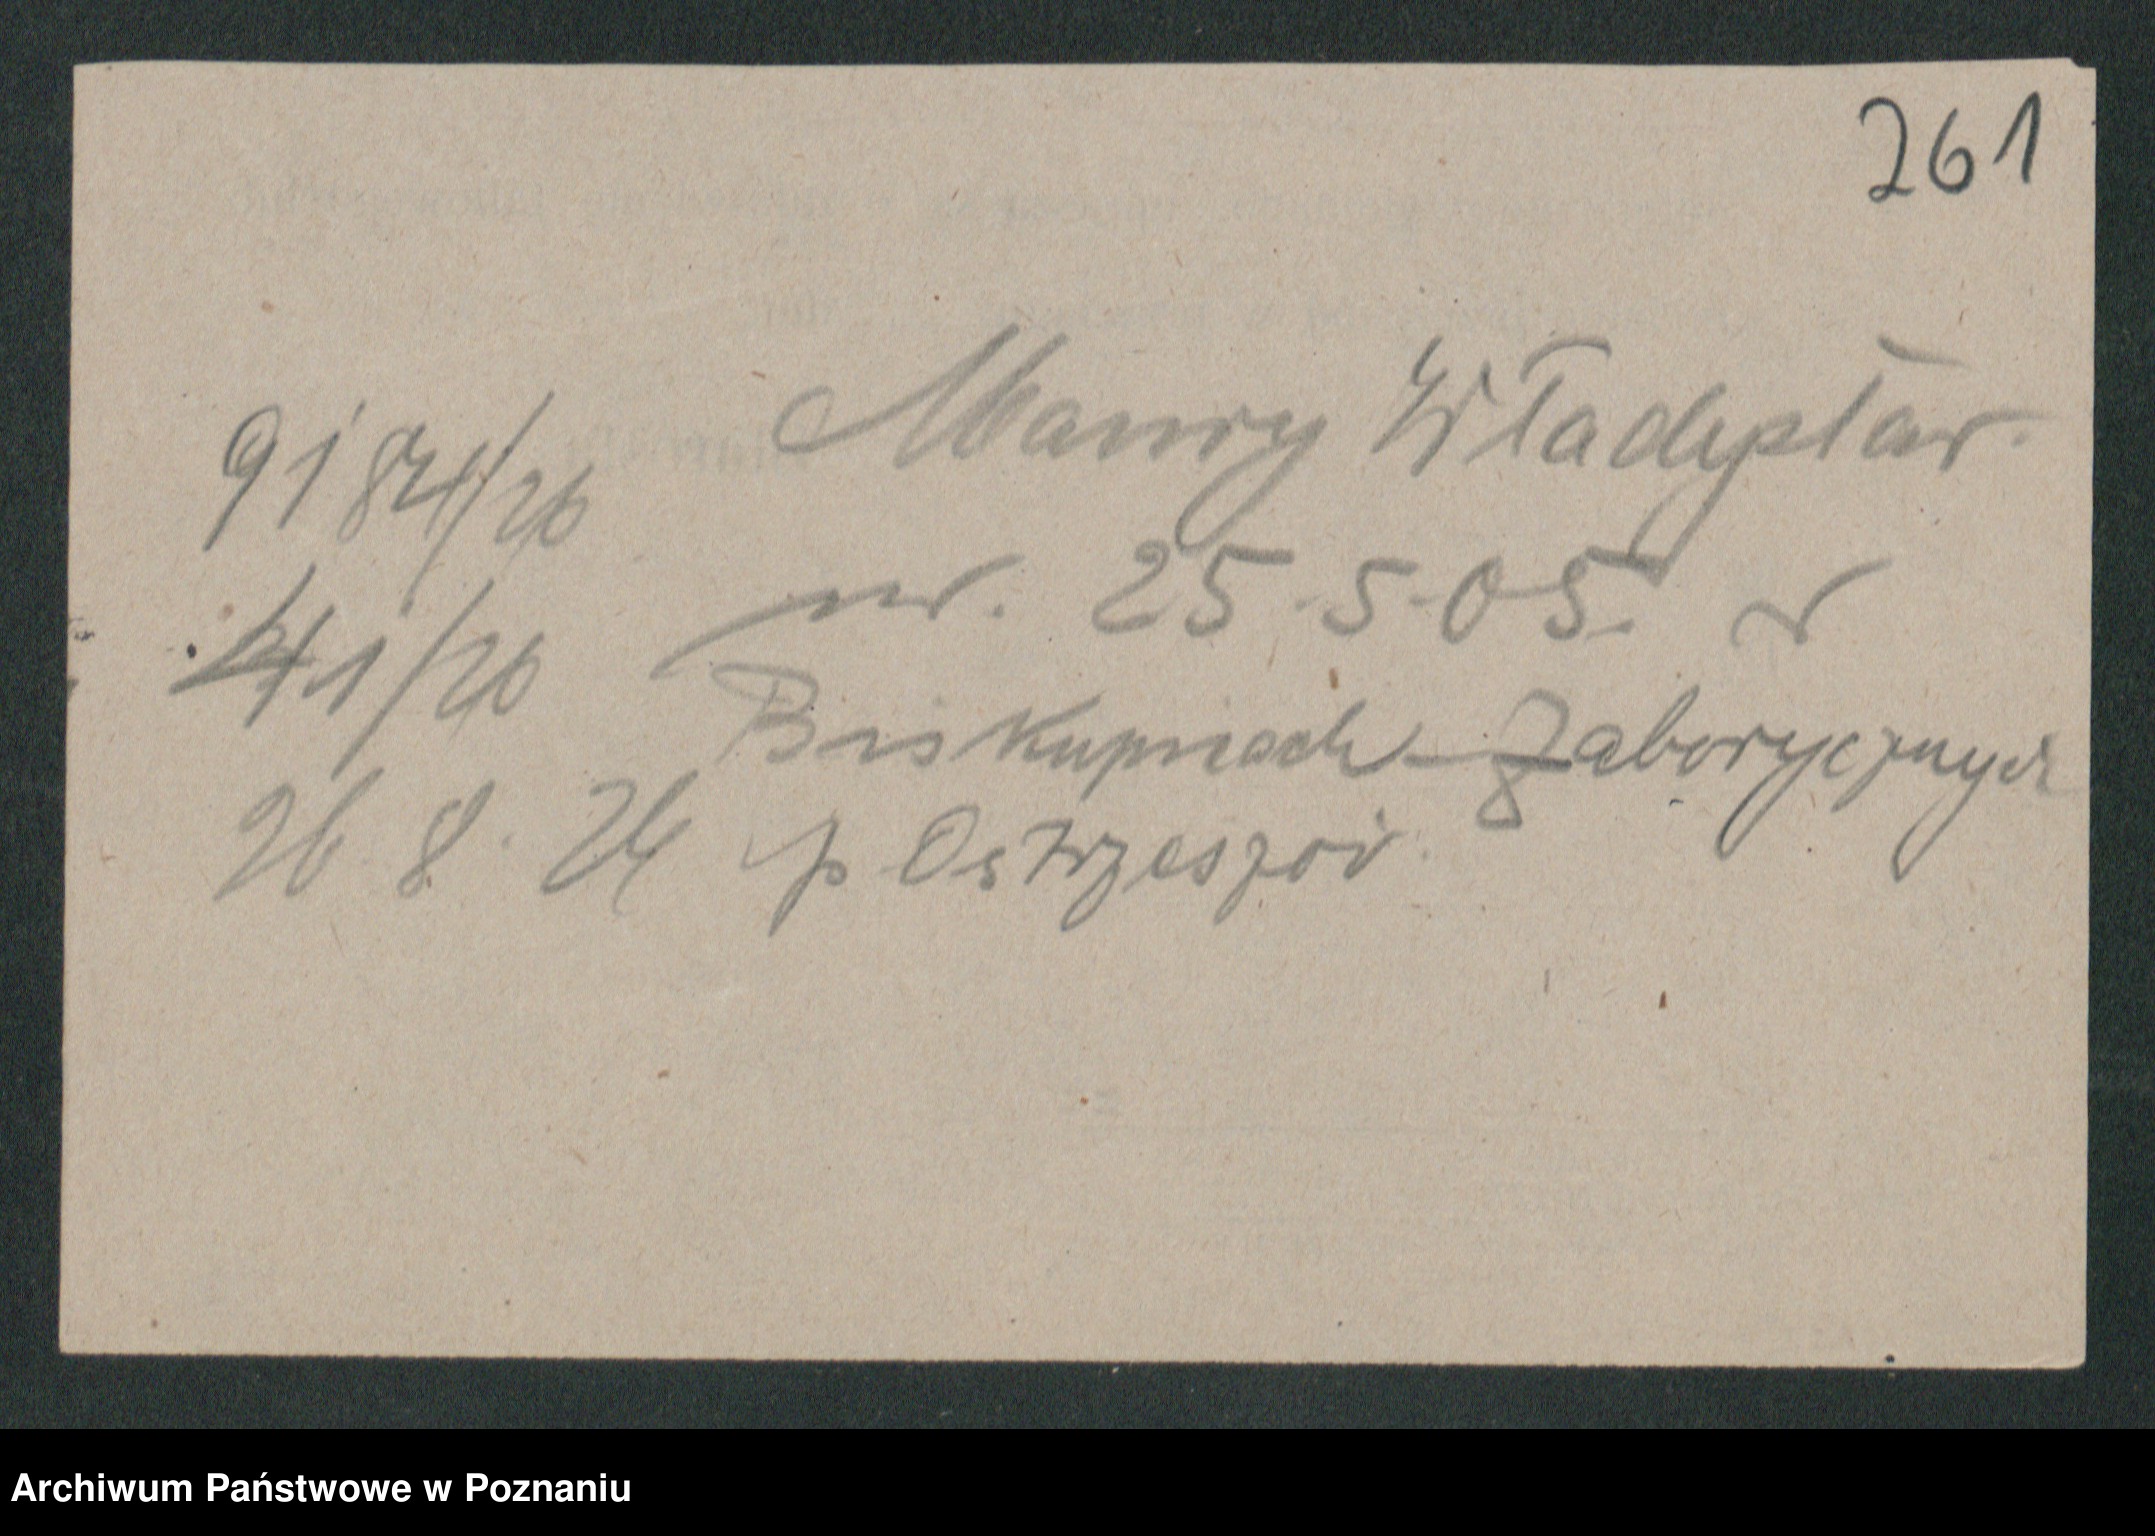 261
Maury Władysław.
ur. 25.5.05. w
Biskupicach-Zaborycznych
p Ostrzeszów
9184/26
41/26
26.8.26
Archiwum Państwowe w Poznaniu